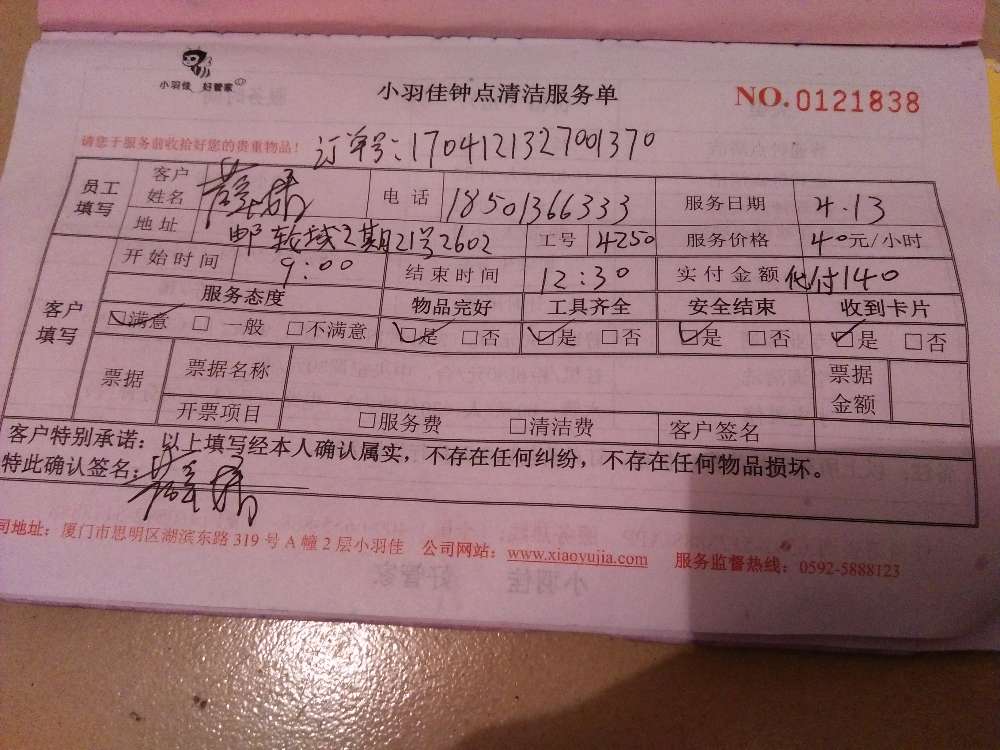 小羽佳 好管家
小羽佳钟点清洁服务单
NO.0121838
请您于服务前收拾好您的贵重物品!
订单号:1704121327001370
员工填写 客户姓名 电话 18501366333 服务日期 4.13
地址 邮轮城2期21号2602 工号 4250 服务价格 40元/小时
客户填写 开始时间 9:00 结束时间 12:30 实付金额 代付140
服务态度 物品完好 工具齐全 安全结束 收到卡片
☑满意 □一般 □不满意 ☑是 □否 ☑是 □否 ☑是 □否 ☑是 □否
票据 票据名称 票据金额
开票项目 □服务费 □清洁费 客户签名
客户特别承诺:以上填写经本人确认属实,不存在任何纠纷,不存在任何物品损坏。
特此确认签名:
司地址:厦门市思明区湖滨东路319号A幢2层小羽佳 公司网站:www.xiaoyujia.com 服务监督热线:0592-5888123